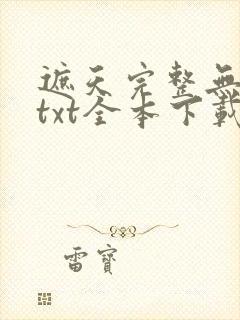 遮天完整無
txt全本下載
雷寶